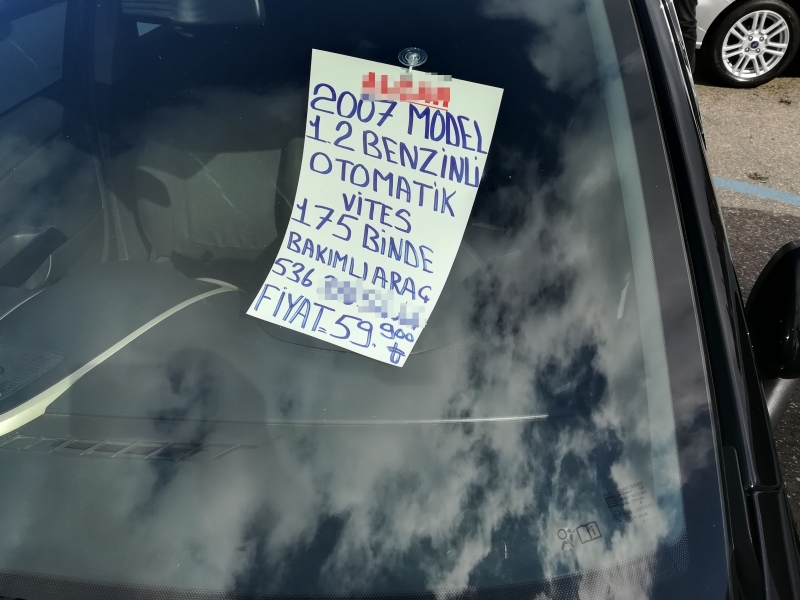 2007 MODEL
1.2 BENZİNLİ
OTOMATİK
VİTES
175 BİNDE
BAKIMLI ARAÇ
536
FİYAT=59.900
₺